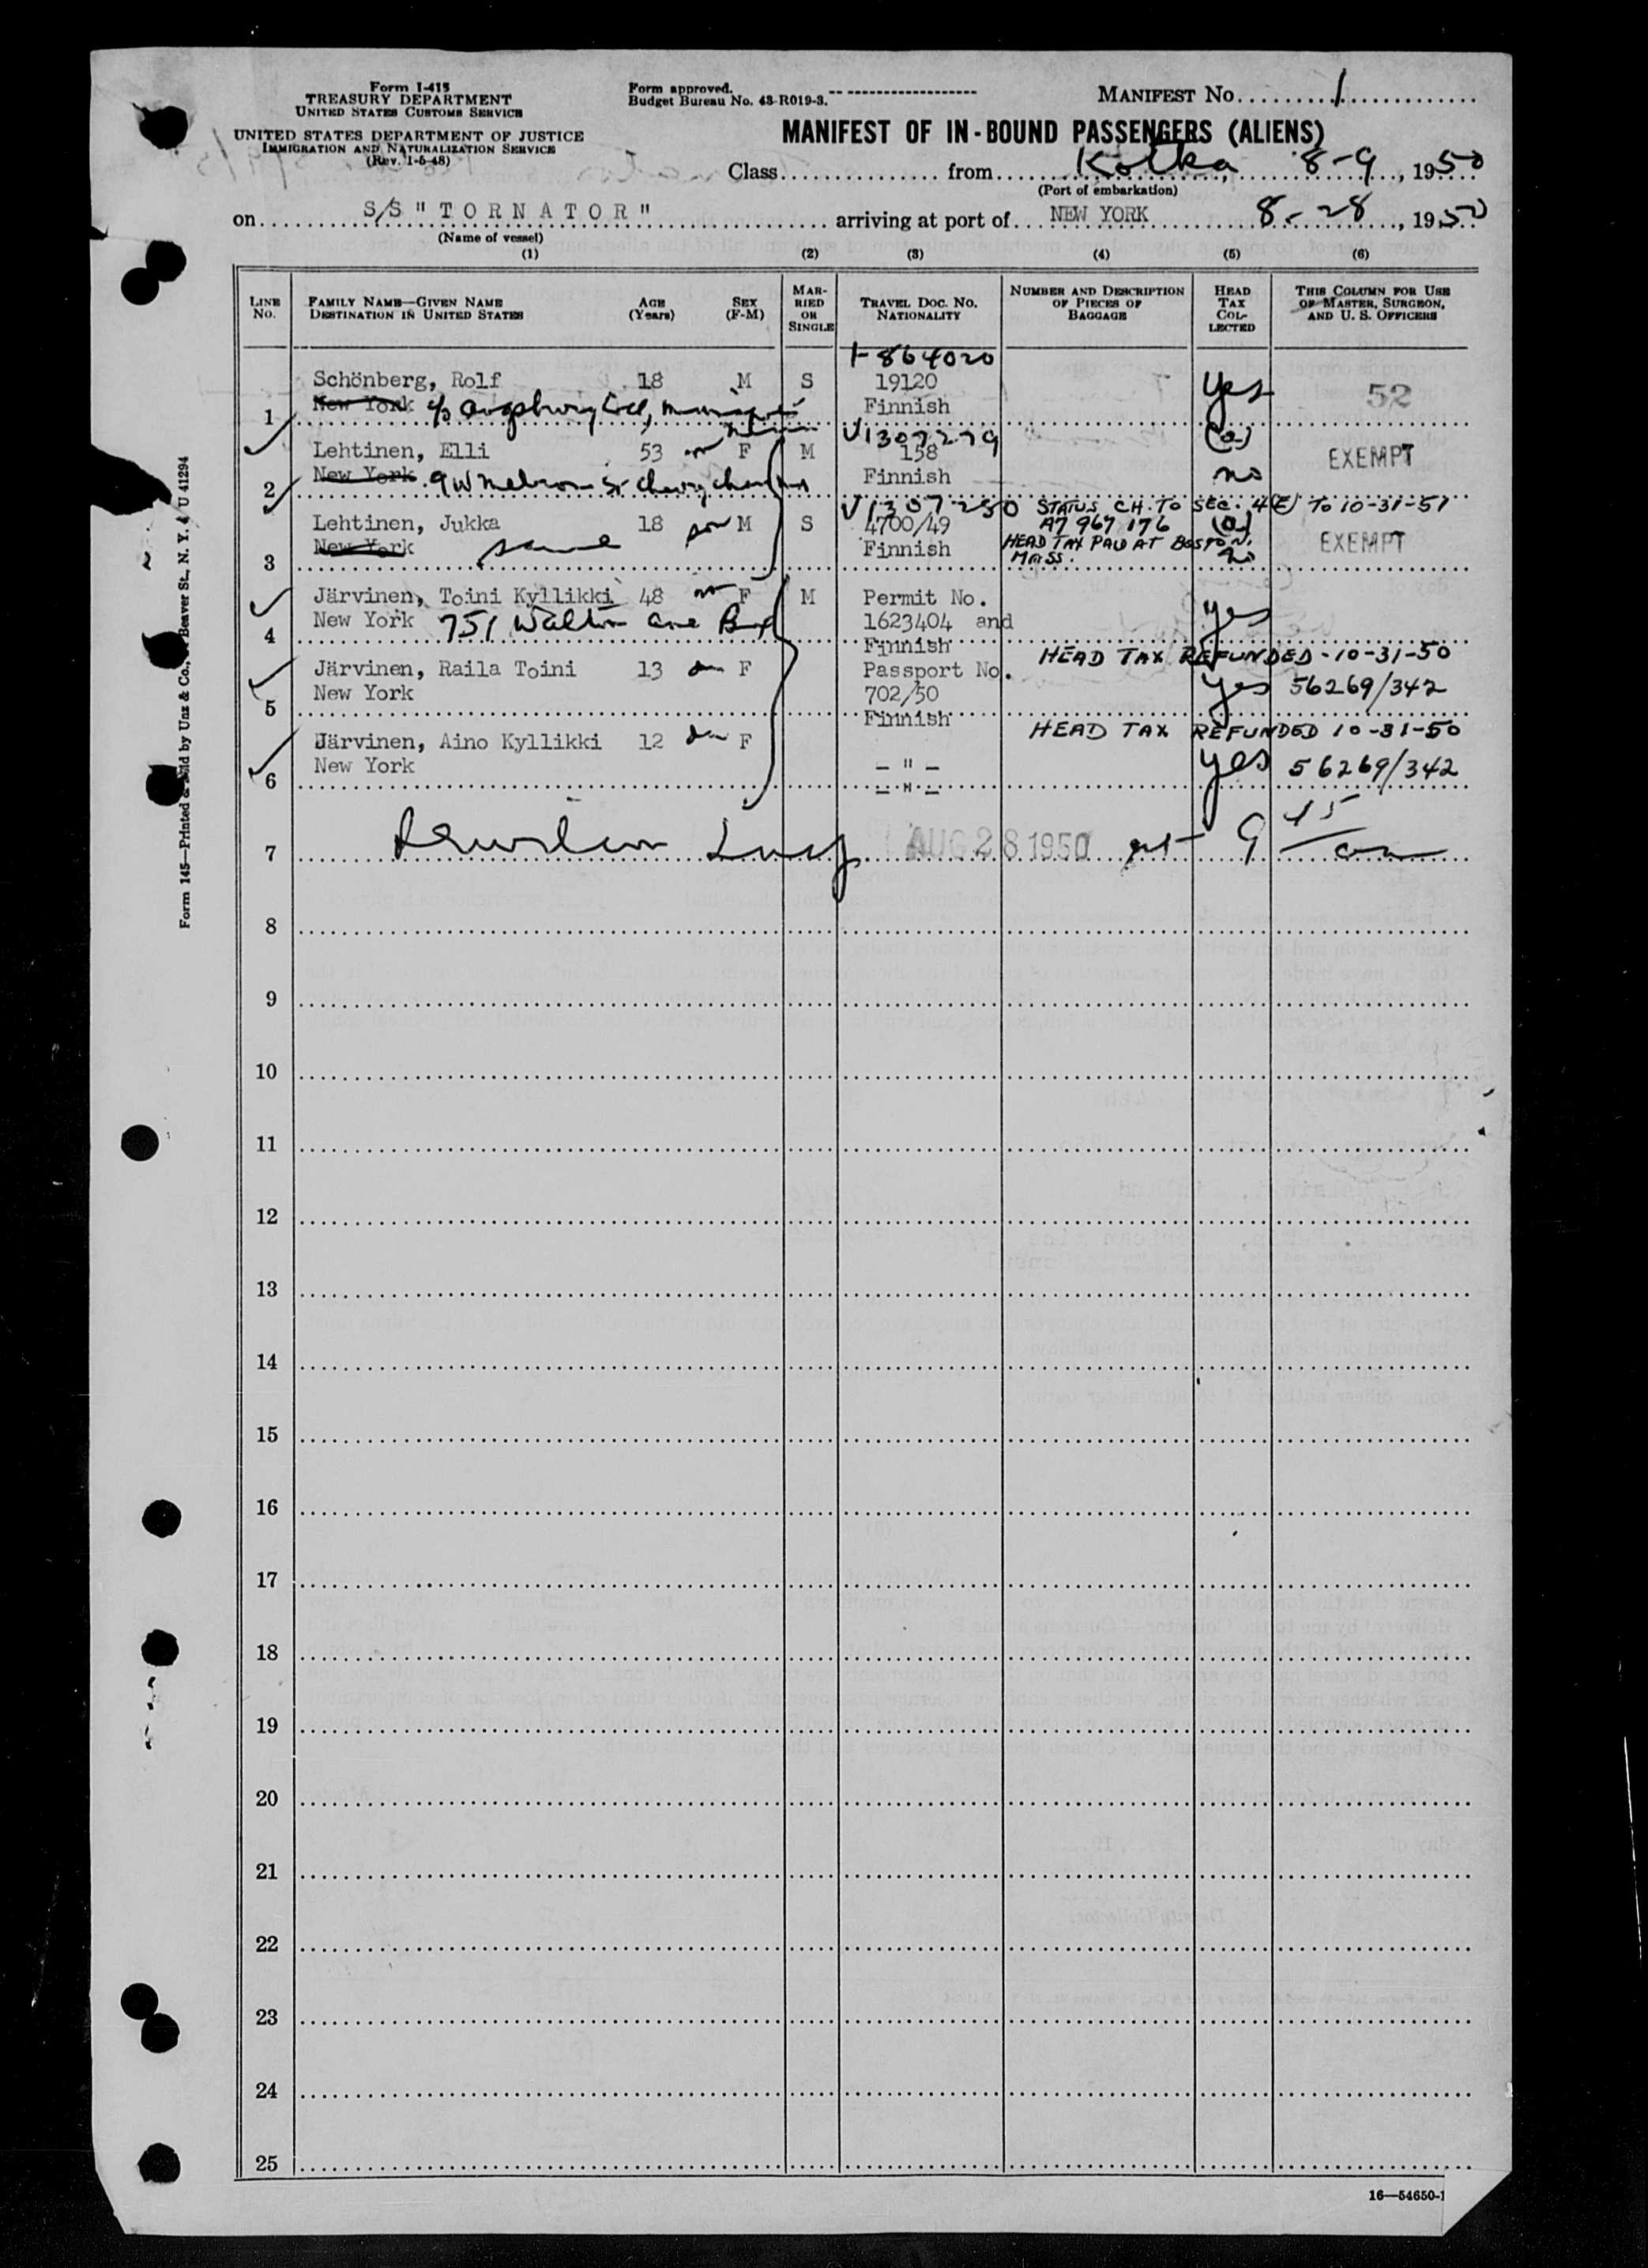 Form I-415
TREASURY DEPARTMENT
UNITED STATES CUSTOMS SERVICE
UNITED STATES DEPARTMENT OF JUSTICE
IMMIGRATION AND NATURALIZATION SERVICE
(Rev. 1-5-48)
Form approved.
Budget Bureau No. 43-R019-3.
MANIFEST NO. 1
MANIFEST OF IN-BOUND PASSENGERS (ALIENS)
Class from Kotka, 8-9, 1950
(Port of embarkation)
on S/S "TORNATOR" arriving at port of NEW YORK 8-28, 1950
(Name of vessel)
(1) (2) (3) (4) (5) (6)
LINE NO.
FAMILY NAME—GIVEN NAME
DESTINATION IN UNITED STATES
AGE (Years)
SEX (F-M)
MARRIED OR SINGLE
TRAVEL DOC. NO. NATIONALITY
NUMBER AND DESCRIPTION OF PIECES OF BAGGAGE
HEAD TAX COLLECTED
THIS COLUMN FOR USE OF MASTER, SURGEON, AND U. S. OFFICERS
I-864020
Schönberg, Rolf 18 M S 19120 yes 52
New York c/o Augsburg Coll, Finnish
1
V1307279 (a)
Lehtinen, Elli 53 F M 158 EXEMPT
New York 9 W Melrose St Chevy Chase Finnish no
2
V1307280 STATUS CH. TO SEC. 4(E) TO 10-31-51
Lehtinen, Jukka 18 son M S 4700/49 A7 967 176 (a) EXEMPT
New York same Finnish HEAD TAX PAID AT BOSTON. no
3 MASS.
Järvinen, Toini Kyllikki 48 F M Permit No.
New York 751 Walton ave Bx 1623404 and yes
4 Finnish HEAD TAX REFUNDED-10-31-50
Järvinen, Raila Toini 13 F Passport No.
New York 702/50 yes 56269/342
5 Finnish HEAD TAX REFUNDED 10-31-50
Järvinen, Aino Kyllikki 12 F
New York — " — yes 56269/342
6 — " —
7 AUG 28 1950 at 9 45 am
8
9
10
11
12
13
14
15
16
17
18
19
20
21
22
23
24
25
16—54650-1